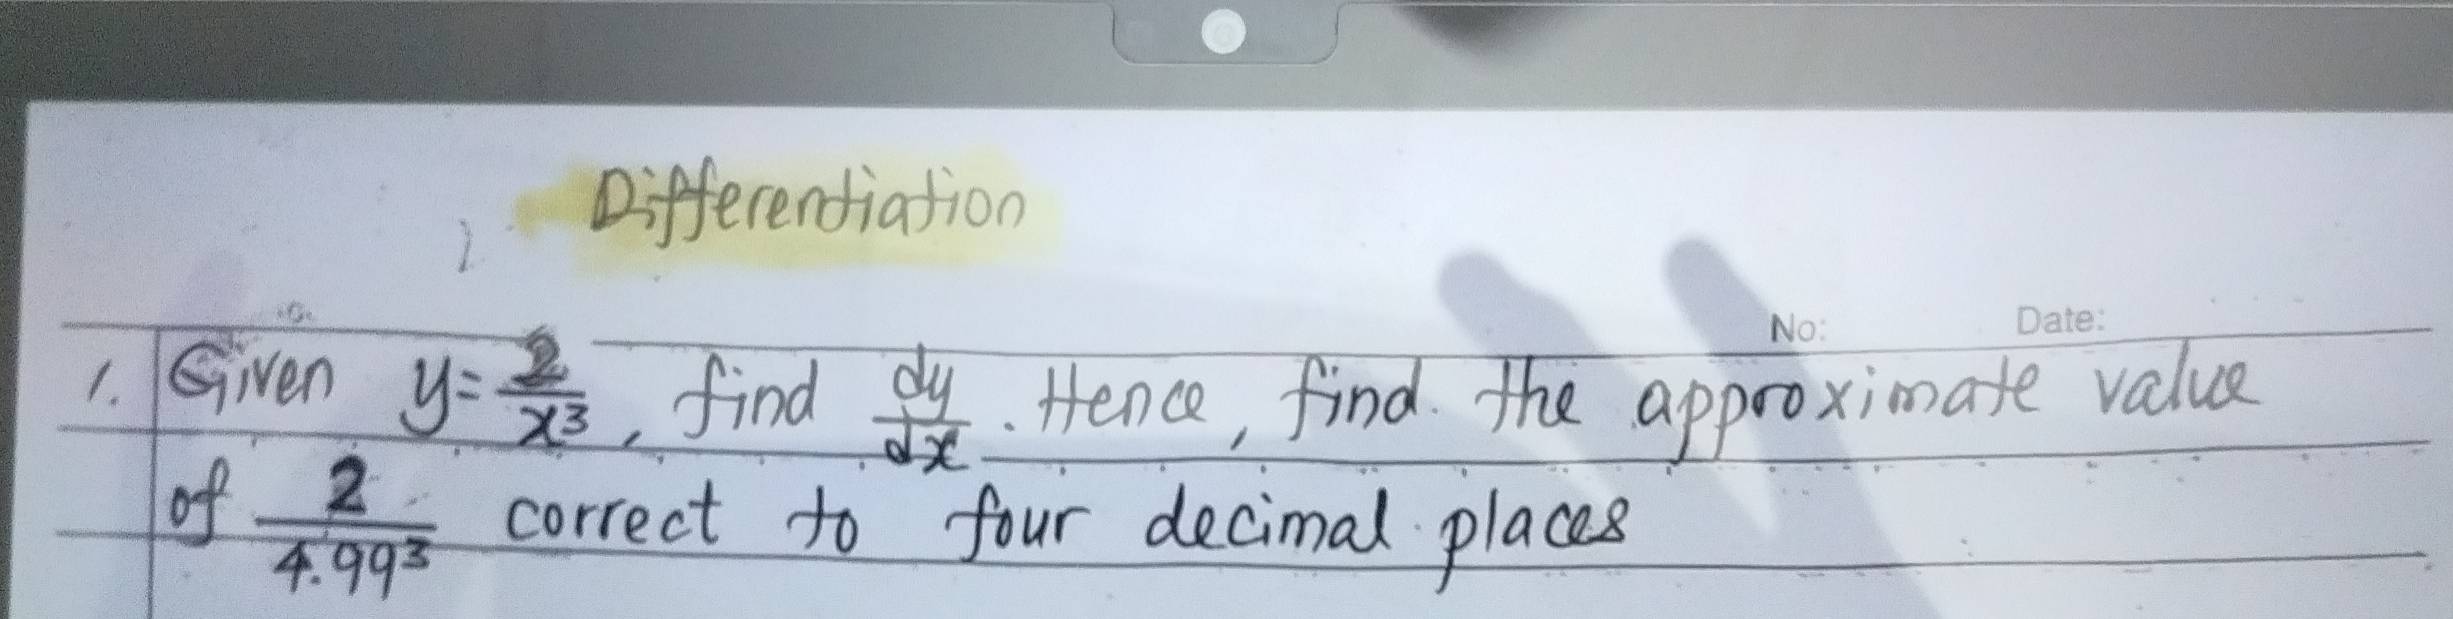 Differentiation
No: Date:
1. Given y = 2/x³, find dy/dx. Hence, find the approximate value
of 2/4.99³ correct to four decimal places